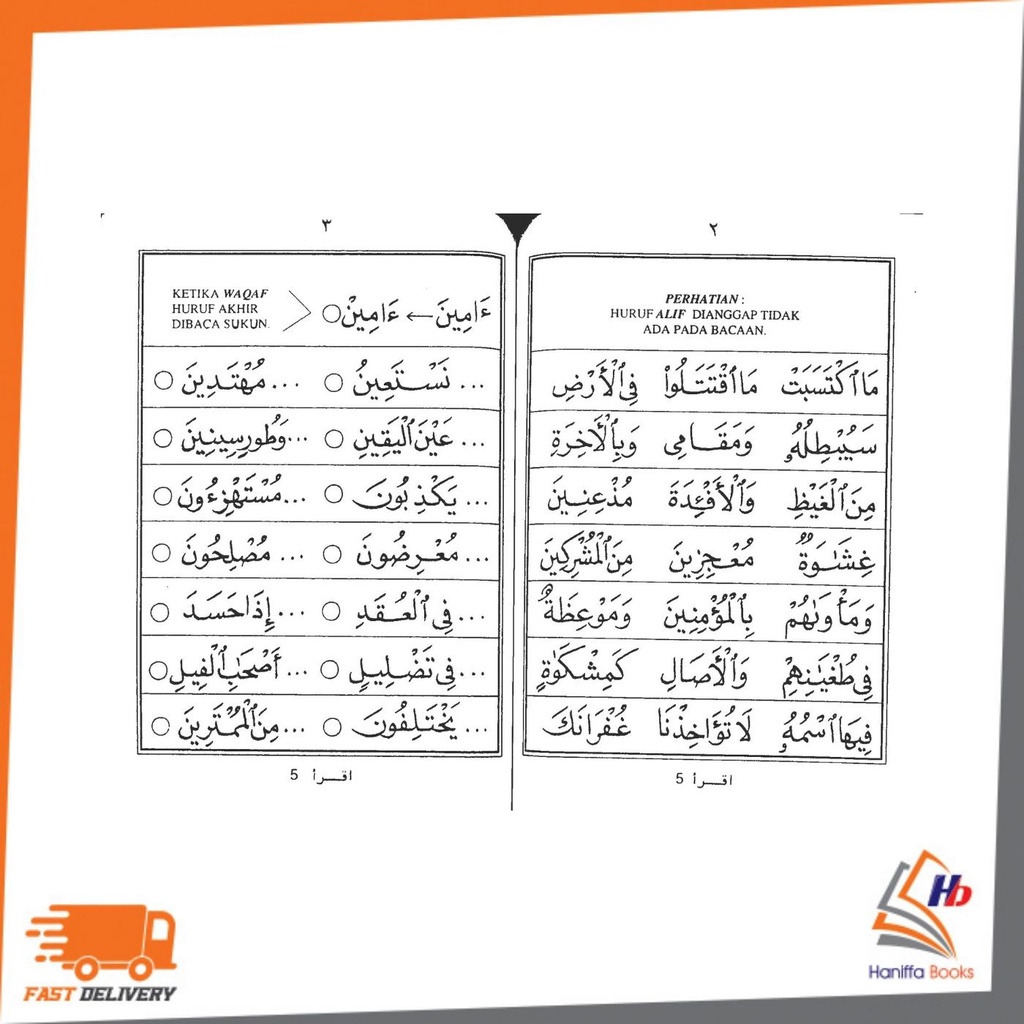 ٢
PERHATIAN :
HURUF ALIF DIANGGAP TIDAK
ADA PADA BACAAN.
مَا ٱكْتَسَبَتْ مَا ٱقْتَتَلُوا۟ فِى ٱلْأَرْضِ
سَيُبْطِلُهُۥ وَمَقَامِى وَبِالْأَخِرَةِ
مِنَ ٱلْغَيْظِ وَٱلْأَفْـِٔدَةَ مُذْعِنِينَ
غِشَـٰوَةٌ مُعْجِزِينَ مِنَ ٱلْمُشْرِكِينَ
وَمَأْوَىٰهُمْ بِٱلْمُؤْمِنِينَ وَمَوْعِظَةٌ
فِى طُغْيَـٰنِهِمْ وَٱلْأَصَالِ كَمِشْكَوٰةٍ
فِيهَا ٱسْمُهُۥ لَا تُؤَاخِذْنَا غُفْرَانَكَ
اقـرأ 5
٣
KETIKA WAQAF
HURUF AKHIR
DIBACA SUKUN.
ءَامِينَ ← ءَامِينْ ○
... نَسْـتَعِينُ ○ ... مُهْتَـدِينَ ○
... عَيْنَ ٱلْيَقِينِ ○ ... وَطُورِ سِينِينَ ○
... يَكْذِبُونَ ○ ... مُسْتَهْزِءُونَ ○
... مُعْـرِضُونَ ○ ... مُصْلِحُونَ ○
... فِى ٱلْعُـقَدِ ○ ... إِذَا حَسَـدَ ○
... فِى تَضْلِيلٍ ○ ... أَصْحَـٰبِ ٱلْفِيلِ ○
... يَخْتَـلِفُونَ ○ ... مِنَ ٱلْمُمْتَرِينَ ○
اقـرأ 5
FAST DELIVERY
Hb
Haniffa Books